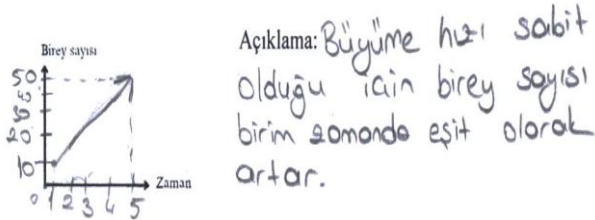 Birey sayısı
50
40
30
20
10
0 1 2 3 4 5
Zaman
Açıklama: Büyüme hızı sabit
olduğu için birey sayısı
birim zamanda eşit olarak
artar.